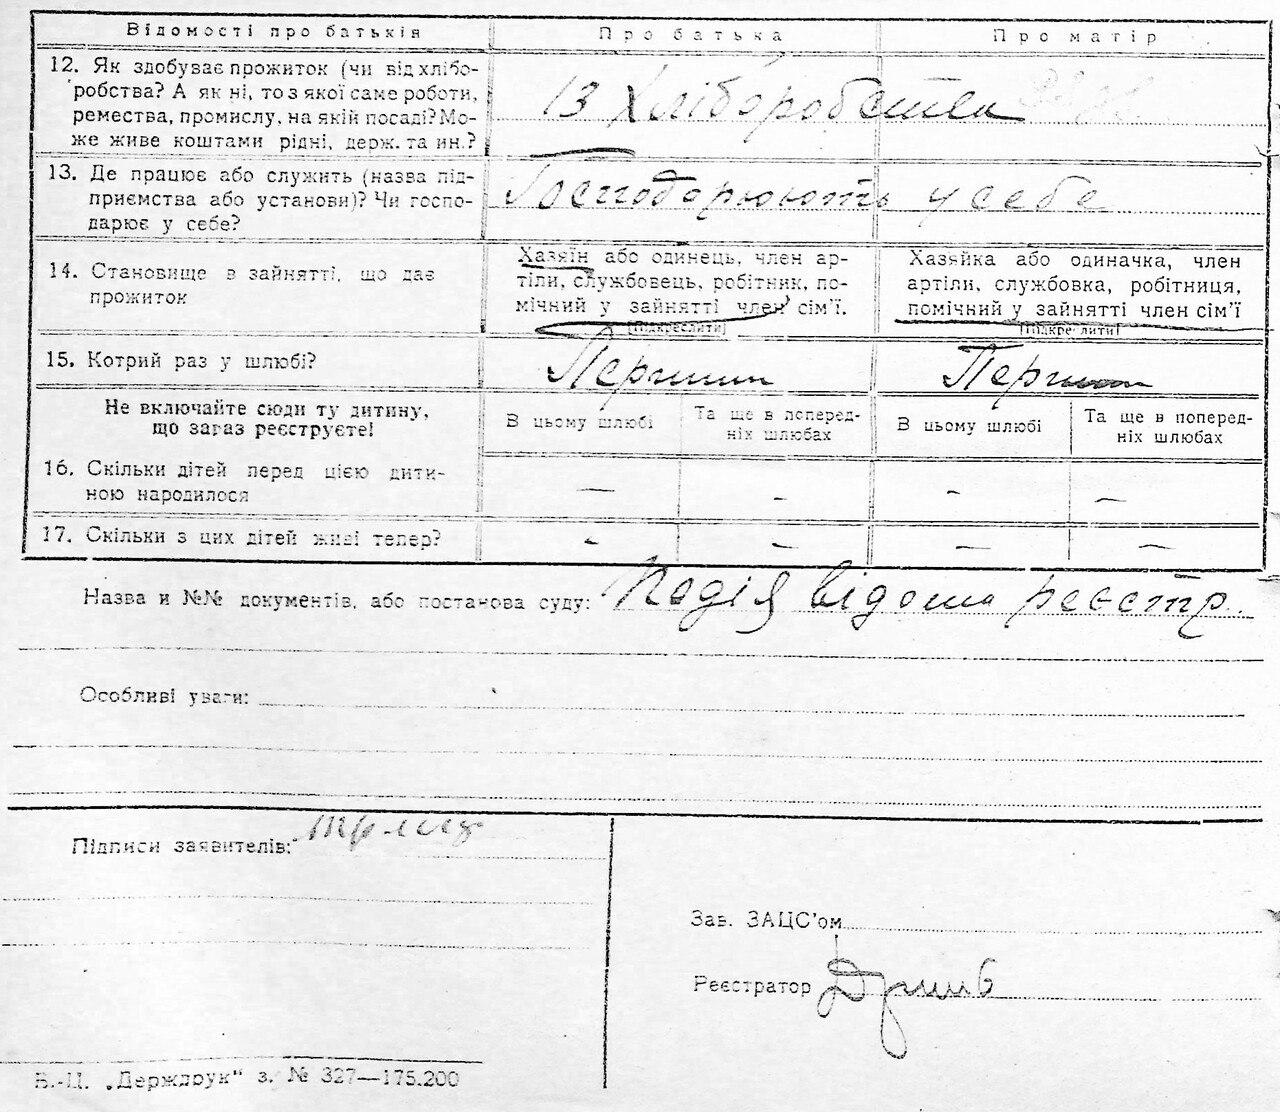 Відомості про батьків
Про батька
Про матір
12. Як здобуває прожиток (чи від хлібо-
робства? А як ні, то з якої саме роботи,
ремества, промислу, на якій посаді? Мо-
же живе коштами рідні, держ. та ин.?
Із Хліборобства
13. Де працює або служить (назва під-
приємства або установи)? Чи госпо-
дарює у себе?
Господорюють у себе
14. Становище в зайнятті, що дає
прожиток
Хазяїн або одинець, член ар-
тіли, службовець, робітник, по-
мічний у зайнятті член сім'ї.
(Підкреслити)
Хазяйка або одиначка, член
артіли, службовка, робітниця,
помічний у зайнятті член сім'ї
(Підкреслити)
15. Котрий раз у шлюбі?
Першин
Першин
Не включайте сюди ту дитину,
що зараз реєструєте!
В цьому шлюбі
Та ще в поперед-
ніх шлюбах
В цьому шлюбі
Та ще в поперед-
ніх шлюбах
16. Скільки дітей перед цією дити-
ною народилося
— - - —
17. Скільки з цих дітей живі тепер?
- — — —
Назва и №№ документів, або постанова суду: Подія відома реєстр.
Особливі уваги:
Підписи заявителів:
Зав. ЗАЦС'ом
Реєстратор
В.-Ц. „Держдрук" з. № 327—175.200